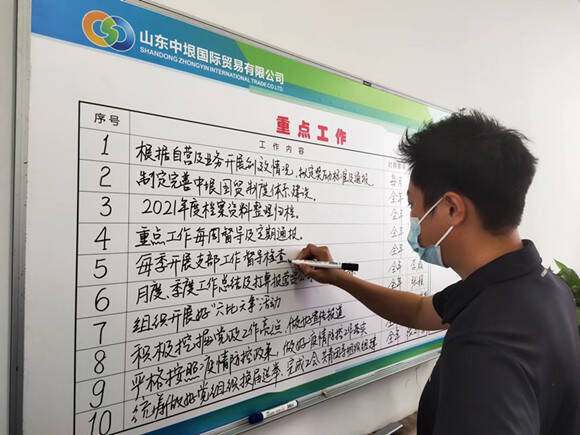 山东中垠国际贸易有限公司
SHANDONG ZHONGYIN INTERNATIONAL TRADE CO.,LTD
重点工作
序号 工作内容
1 根据自营及业务开展创效情况,拟定奖励标准及通报 每月
2 制定完善中垠国贸制度体系建设。 全年
3 2021年度档案资料整理归档。 全年
4 重点工作每周督导及定期通报。 全年
5 每季开展支部工作督导检查 全年
6 月度、季度工作总结及 全年
7 组织开展好"六比六争"活动
8 积极挖掘党及工作亮点,做好宣传报道
9 严格按照疫情防控政策,做好疫情防控工作落实
10 统筹做好党组织换届选举,完成工会